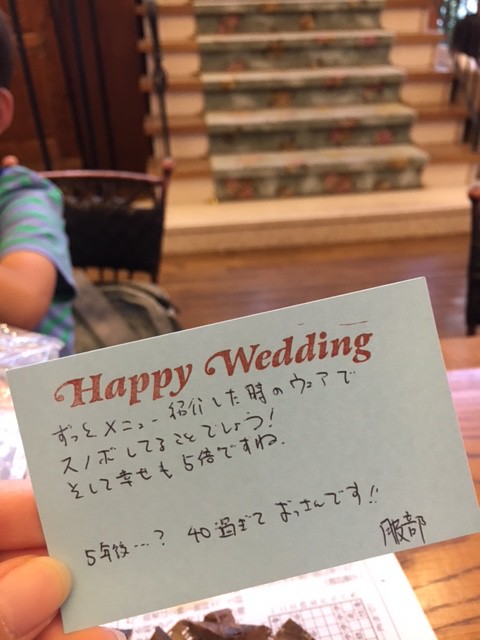 Happy Wedding
ずっとメニュー紹介した時のウェアで
スノボしてることでしょう!
そして幸せも5倍ですね.
5年後…? 40過ぎて おっさんです!!
服部